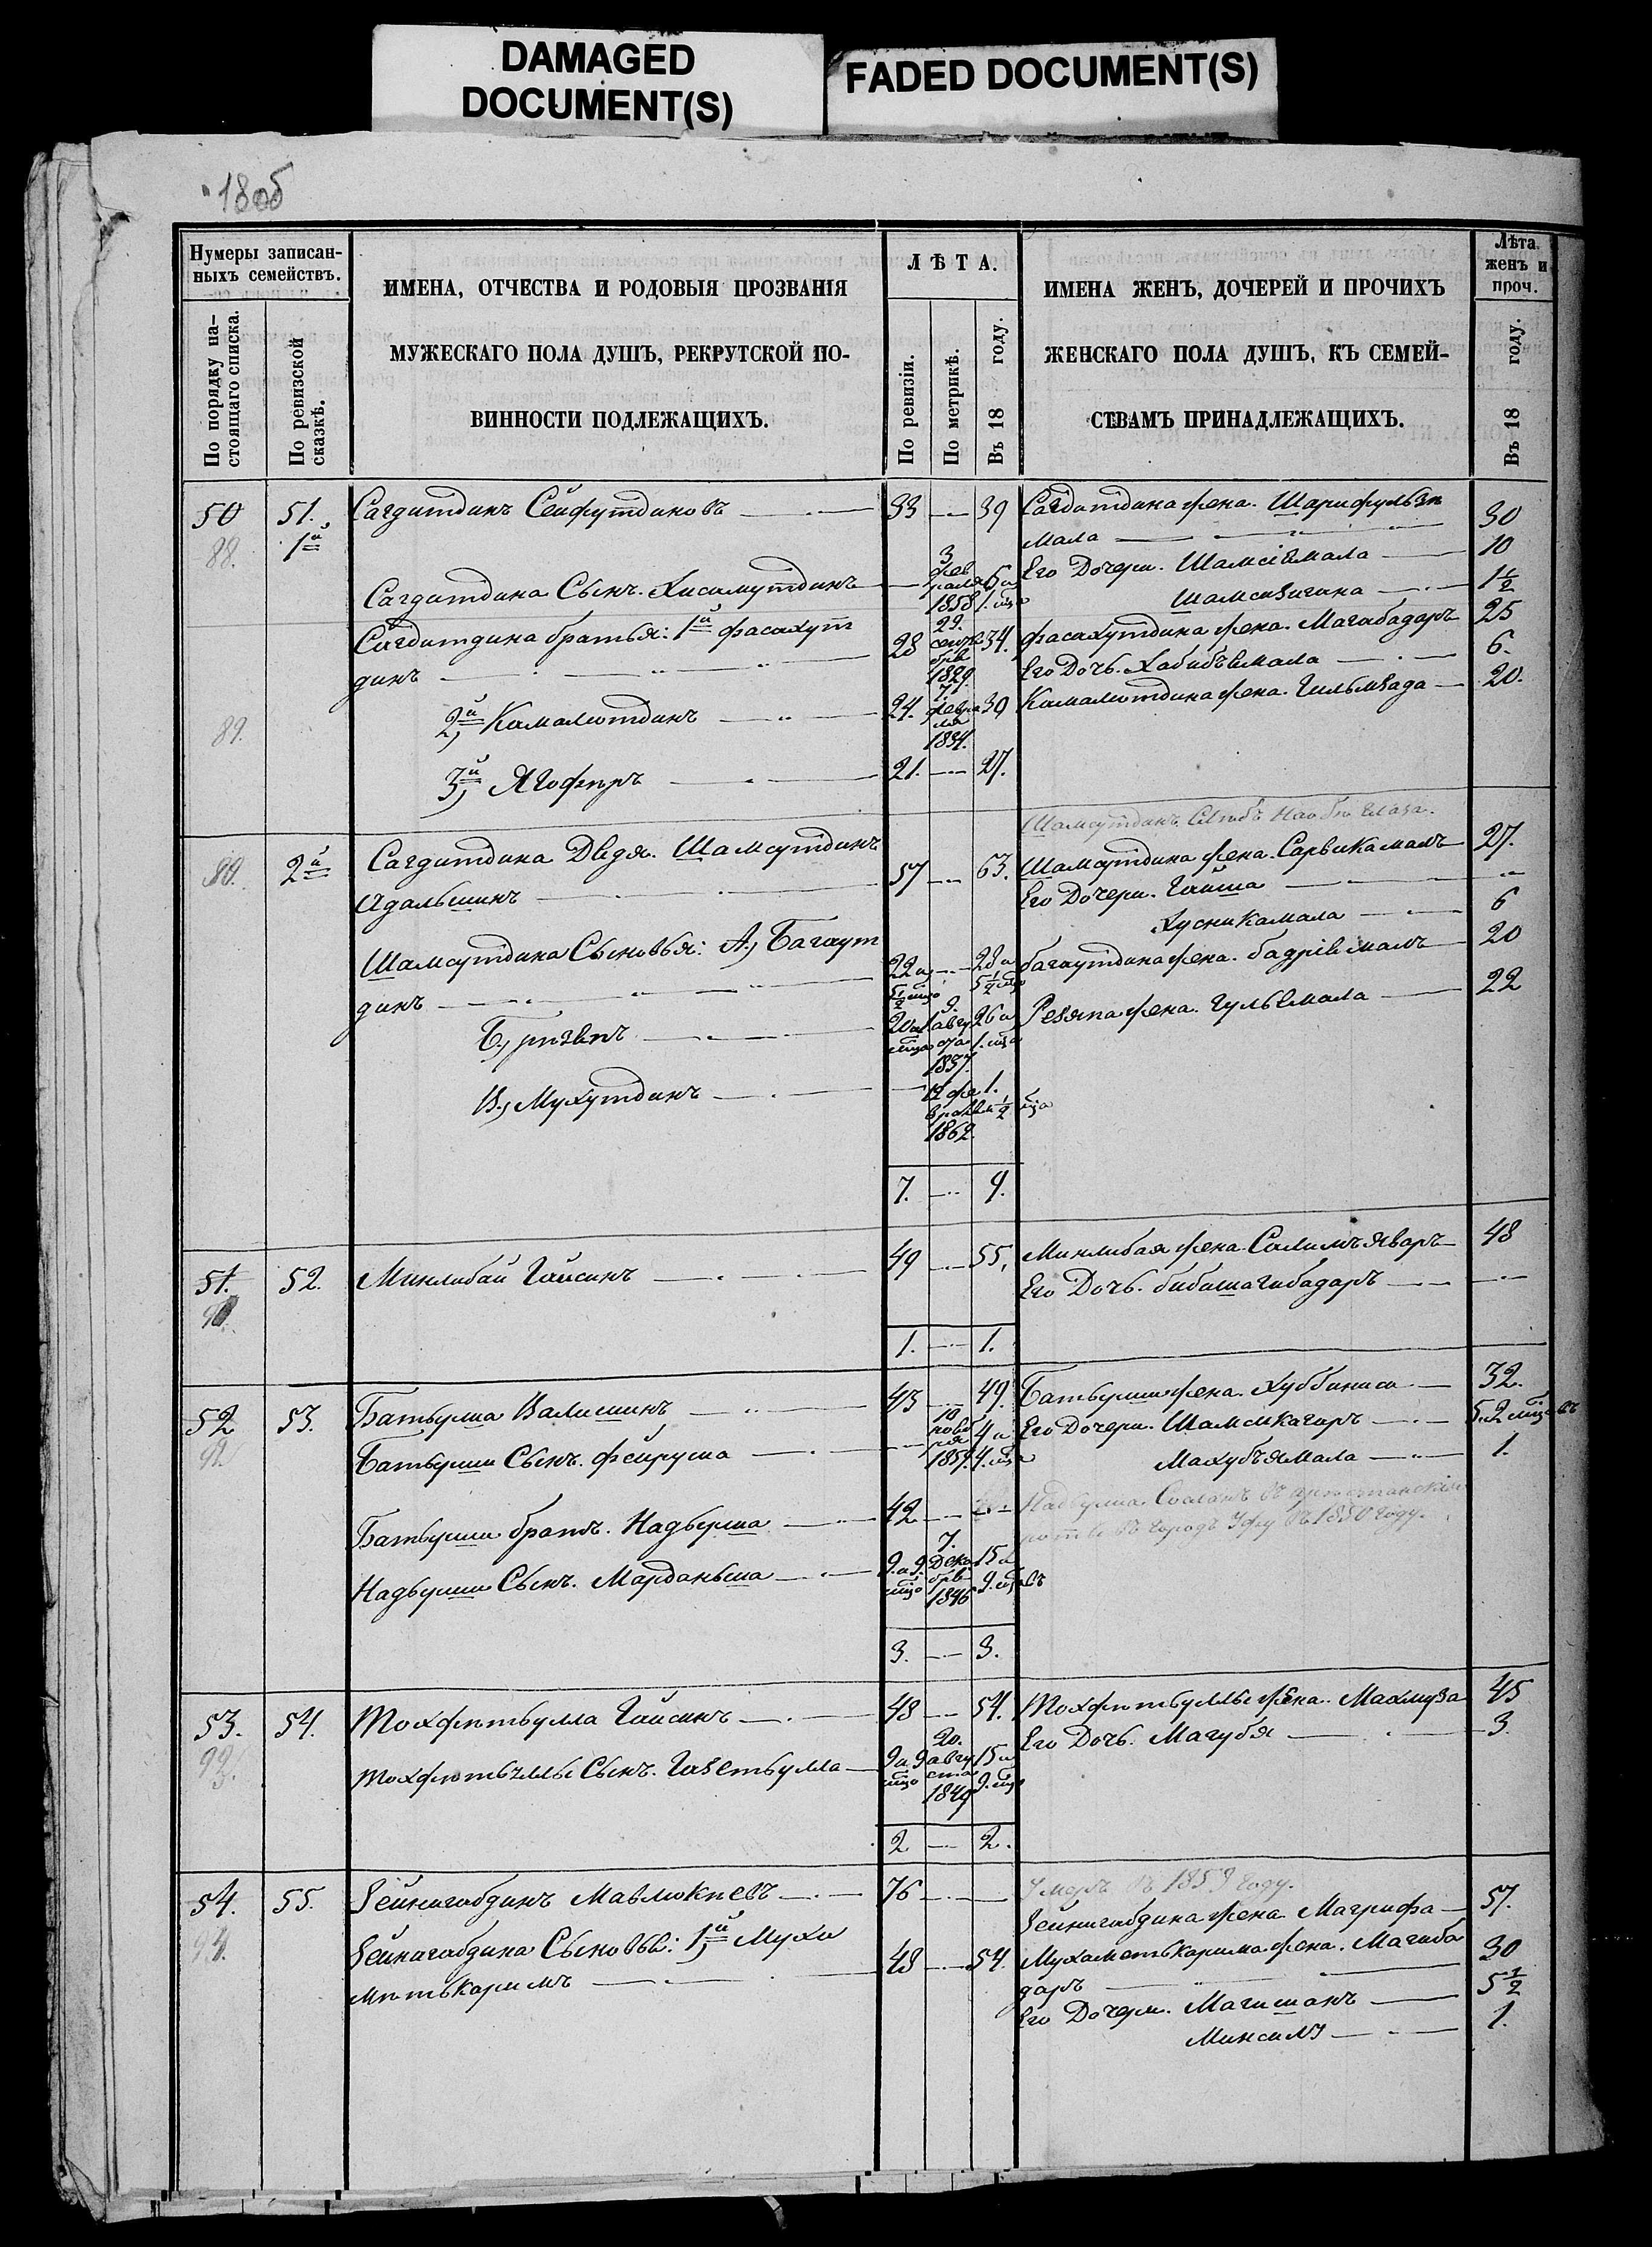 DAMAGED
DOCUMENT(S)
FADED DOCUMENT(S)
180б
Нумеры записан-
ныхъ семействъ.
По порядку на-
стоящаго списка.
По ревизской
сказкѣ.
ИМЕНА, ОТЧЕСТВА И РОДОВЫЯ ПРОЗВАНІЯ
МУЖЕСКАГО ПОЛА ДУШЪ, РЕКРУТСКОЙ ПО-
ВИННОСТИ ПОДЛЕЖАЩИХЪ.
ЛѢТА.
По ревизіи.
По метрикѣ.
Въ 18 году.
ИМЕНА ЖЕНЪ, ДОЧЕРЕЙ И ПРОЧИХЪ
ЖЕНСКАГО ПОЛА ДУШЪ, КЪ СЕМЕЙ-
СТВАМЪ ПРИНАДЛЕЖАЩИХЪ.
Лѣта
женъ и
проч.
Въ 18 году.
50 51. Сагдитдинъ Сейфутдиновъ 33 39 Сагдитдина жена. Шарифульзя
88. 1й мала 30
Его Дочери. Шамсіямала 10
Сагдитдина Сынъ. Хисамутдинъ 3 февраля 1858
Шамсизигана 1½
Сагдитдина братья: 1й Фасахут
динъ 28 29. сентября 1829 34. Фасахутдина жена. Магибадаръ 25
Его Дочь. Хабибъямала 6.
89. 2й Камалютдинъ 24. 7. февраля 1834. 30 Камалютдина жена. Гильмзада 20.
3й Ягофяръ 21. 27.
Шамсутдинъ Слѣпъ На оба Глаза.
2й Сагдитдина Дядя. Шамсутдинъ
Адальшинъ 57 63. Шамсутдина жена. Сарвикамалъ 27.
Его Дочери. Гайша
Хуснижамала 6
Шамсутдина Сыновья: А, Багаут
динъ 22 и 5½ мцо 28 и 5½ мцо Багаутдина жена. Бадріямалъ 20
Б, Рязяпъ 20 и 1 мцо 9. августа 1837. 26 и 1. мца Резяпа жена. Гульямала 22
В, Мухутдинъ 12 февраля 1862. 1.
7. 9.
51. 52. Минлибай Гайсинъ 49 55, Минлибая жена Салимъяваръ 48
Его Дочь. Бибишагибадаръ
1. 1.
52 53. Батырша Валишинъ 43 49. Батырши жена. Хуббиниса 32.
Его Дочери. Шамсикагаръ
Батырши Сынъ. Фейруша 10 ноября 1857. 4 и 4. мца
Махубъямала 1.
Батырши братъ. Надырша 42 Надырша. Сосланъ въ арестанскія
роты въ городъ Уфу въ 1850 году.
Надырши Сынъ. Марданьша 9. и 9. мцо 7. Декабря 1846 15 и 9. мцовъ
3. 3.
53. 54. Тохфятьулла Гайсинъ 48 54. Тохфятьуллы жена. Махмуза 45
Его Дочь. Магубя 3.
Тохфятьуллы Сынъ. Гизетьулла 9 и 9 мцо 20. августа 1849 15 и 9. мцо
2 2.
54. 55. Зейнигабдинъ Мавлюкпевъ 76 Умеръ въ 1859 году.
94. Зейнигабдина жена Магрифа 57.
Зейнигабдина Сыновья: 1й Муха
мятькаримъ 48 54. Мухаметькарима жена. Магиба
даръ 30
Его Дочери. Магишанъ 5½
1.